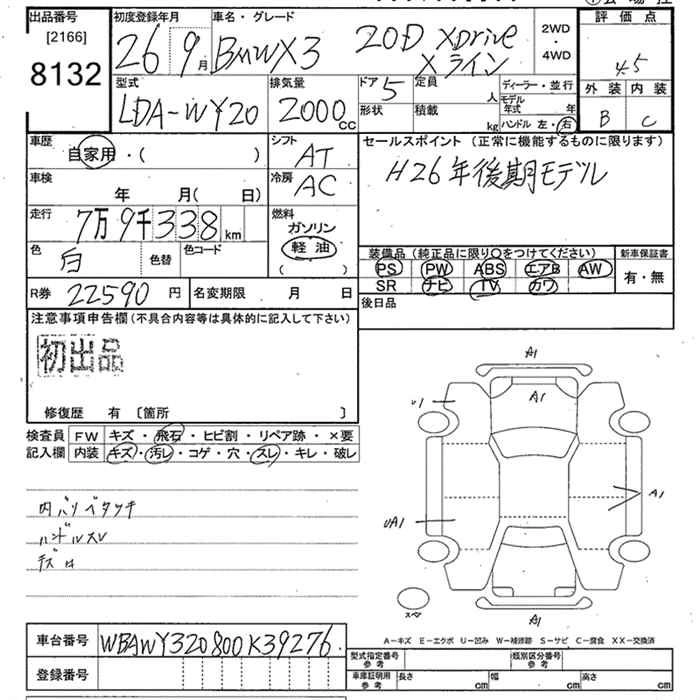 出品番号
[2166]
8132
初度登録年月
26 9月
車名・グレード
BMW X3 20D XDrive
Xライン
2WD
・
4WD
評価点
4.5
外装 内装
B C
型式
LDA-WY20
排気量
2000cc
ドア 5
形状
定員 人
積載 kg
ディーラー・並行
モデル年式 年
ハンドル 左・右
車歴
自家用・( )
シフト
AT
車検
年 月( 日)
冷房
AC
セールスポイント (正常に機能するものに限ります)
H26年後期モデル
走行
7万9千338km
燃料
ガソリン
軽油
( )
色
白
色替
色コード
装備品(純正品に限り○をつけてください)
PS PW ABS エアB AW
SR ナビ TV カワ
新車保証書
有・無
R券 22590円
名変期限 月 日
後日品
注意事項申告欄(不具合内容等は具体的に記入して下さい)
初出品
修復歴 有 〔箇所 〕
検査員
記入欄
FW キズ・飛石・ヒビ割・リペア跡・×要
内装 キズ・汚レ・コゲ・穴・スレ・キレ・破レ
内バリベタツキ
ハンドルスレ
A1
A1
U1
A1
UA1
スペア
A1
A－キズ E－エクボ U－凹み W－補修跡 S－サビ C－腐食 XX－交換済
車台番号 WBAWY320800K39276
登録番号
型式指定番号
参考
類別区分番号
参考
車庫証明用
参考
長さ cm
幅 cm
高さ cm